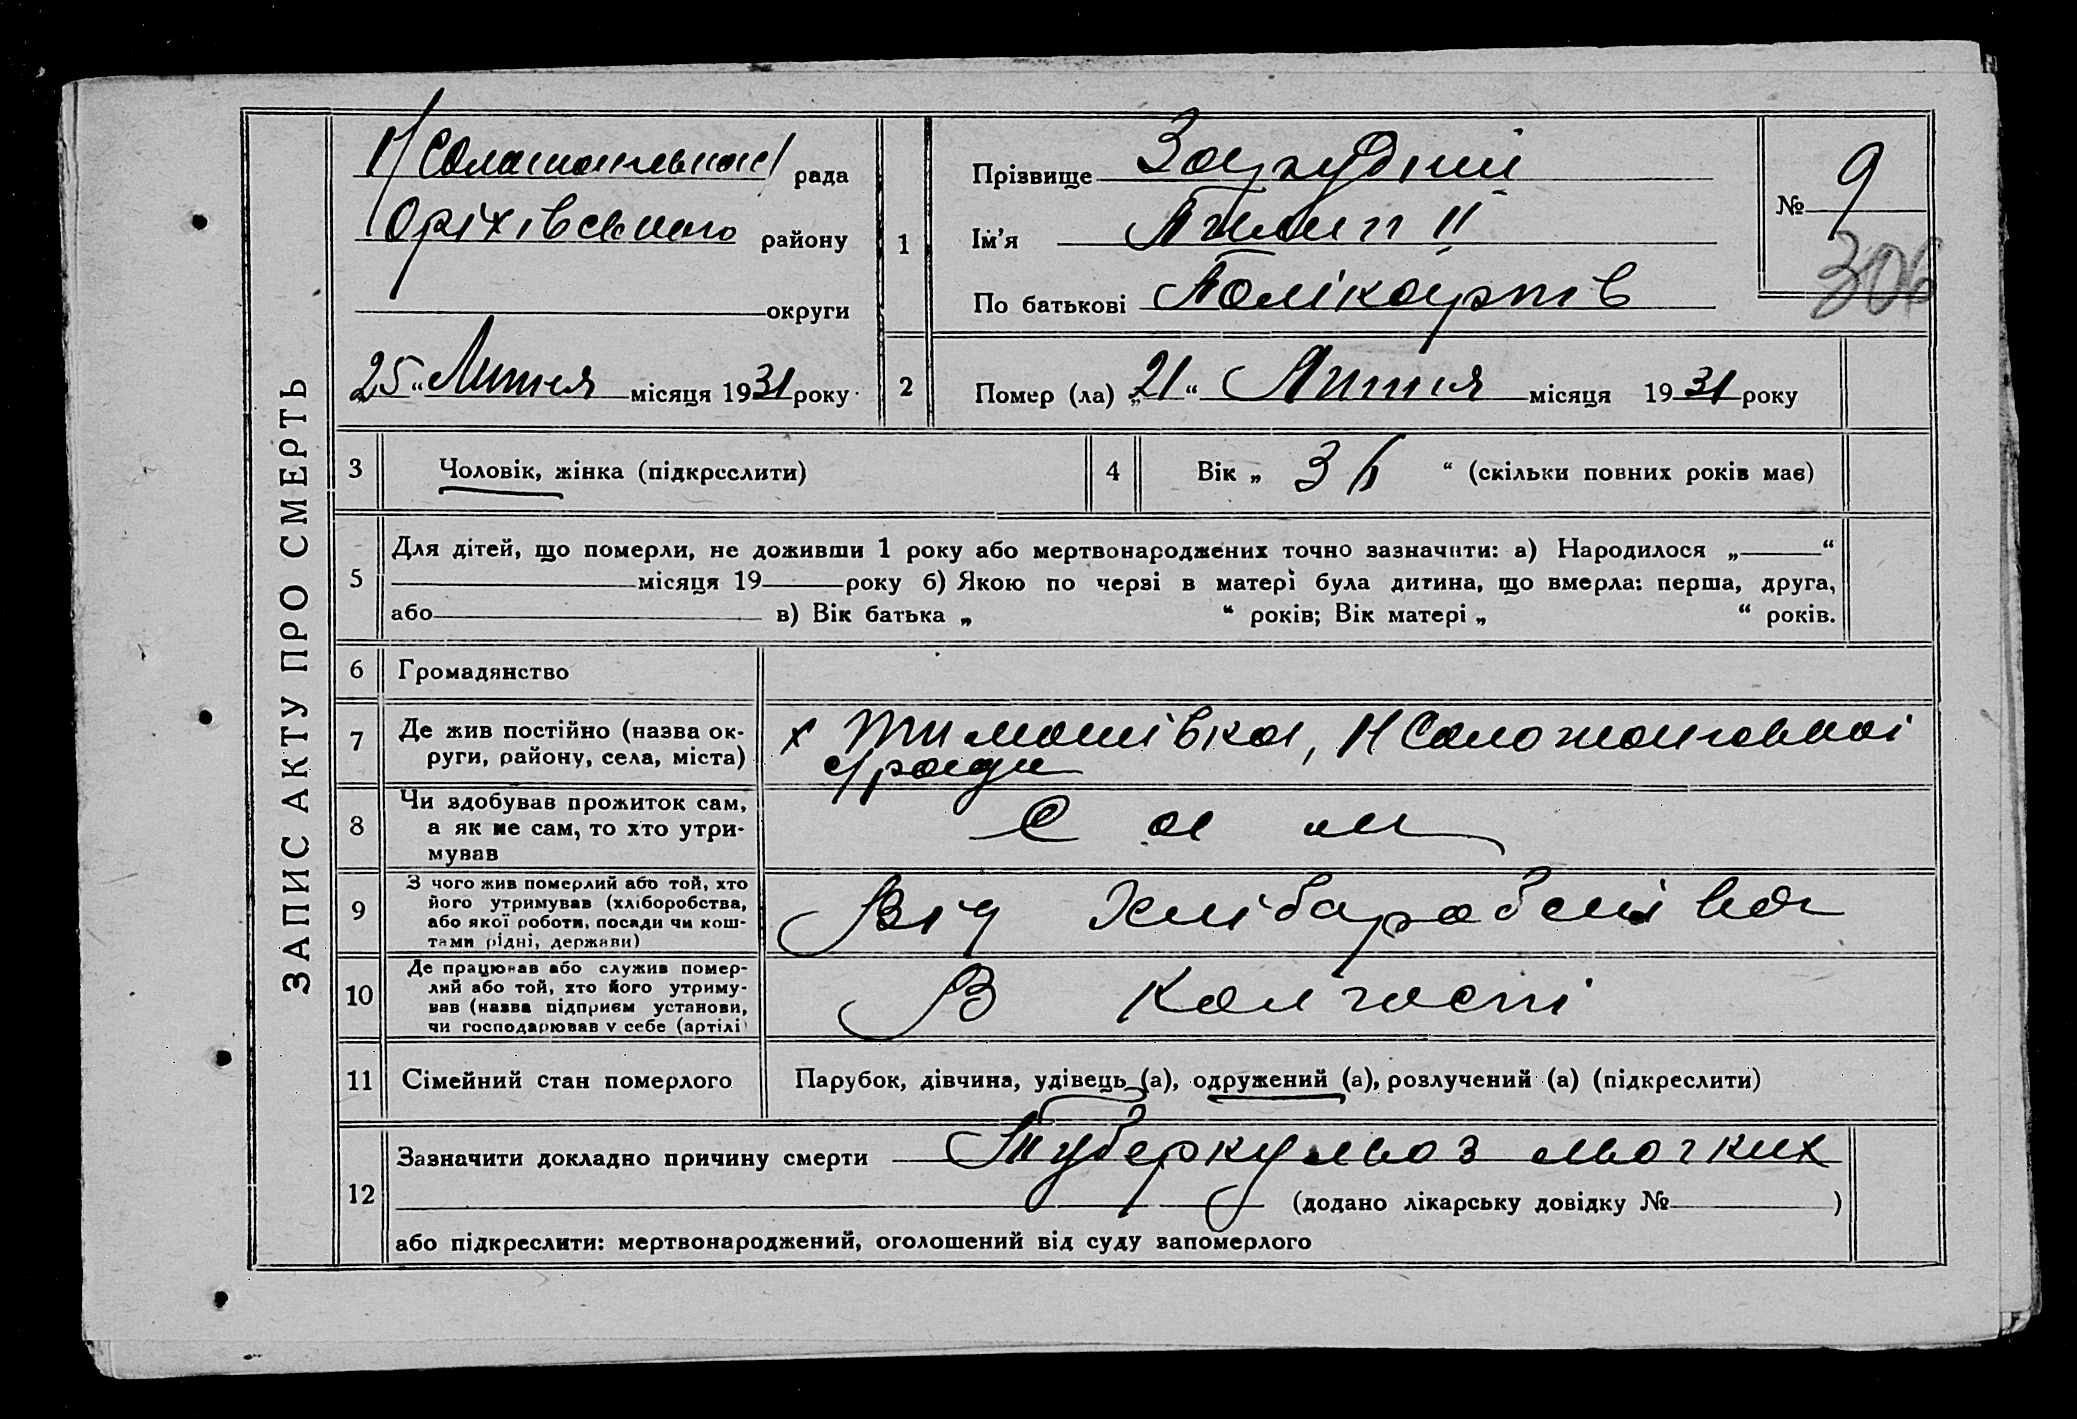 ЗАПИС АКТУ ПРО СМЕРТЬ
рада
Оріхівського району
округи
25 “ Липня місяця 1931 року
1 Прізвище
Ім'я Пилип ІІ
По батькові Полікарпів
№ 9
306
2 Помер (ла) „ 21 “ Липня місяця 1931 року
3 Чоловік, жінка (підкреслити)
4 Вік „ “ (скільки повних років має)
5 Для дітей, що померли, не доживши 1 року або мертвонароджених точно зазначити: а) Народилося „ “
місяця 19 року б) Якою по черзі в матері була дитина, що вмерла: перша, друга,
або в) Вік батька „ “ років; Вік матері „ “ років.
6 Громадянство
7 Де жив постійно (назва ок-
руги, району, села, міста)
х Тимошівка, Н Соложанськоі
с/ради
8 Чи здобував прожиток сам,
а як не сам, то хто утри-
мував
Сам
9 З чого жив померлий або той, хто
його утримував (хліборобства,
або якої роботи, посади чи кош-
тами рідні, держави)
Від Хліборобства
10 Де працював або служив помер-
лий або той, хто його утриму-
вав (назва підприєм установи,
чи господарював у себе (артілі)
В Колгоспі
11 Сімейний стан померлого
Парубок, дівчина, удівець (а), одружений (а), розлучений (а) (підкреслити)
12 Зазначити докладно причину смерти Туберкульоз льогких
(додано лікарську довідку № )
або підкреслити: мертвонароджений, оголошений від суду запомерлого